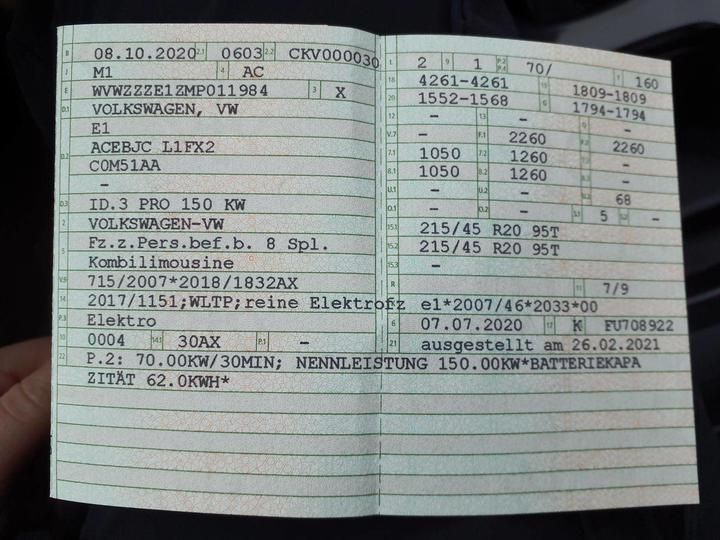 B 08.10.2020 2.1 0603 2.2 CKV000030
J M1 4 AC
E WVWZZZE1ZMP011984 3 X
D.1 VOLKSWAGEN, VW
E1
D.2 ACEBJC L1FX2
C0M51AA
–
D.3 ID.3 PRO 150 KW
2 VOLKSWAGEN-VW
5 Fz.z.Pers.bef.b. 8 Spl.
Kombilimousine
V.9 715/2007*2018/1832AX
14 2017/1151;WLTP;reine Elektrofz
P.3 Elektro
10 0004 14.1 30AX P.1 –
22 P.2: 70.00KW/30MIN; NENNLEISTUNG 150.00KW*BATTERIEKAPA
ZITÄT 62.0KWH*
L 2 9 1 P.2 P.4 70/ T 160
18 4261-4261 19 1809-1809
20 1552-1568 G 1794-1794
12 – 13 – Q –
V.7 – F.1 2260 F.2 2260
7.1 1050 7.2 1260 –
8.1 1050 8.2 1260 –
U.1 – U.2 – 68
O.1 – O.2 – S.1 5 S.2 –
15.1 215/45 R20 95T
15.2 215/45 R20 95T
15.3 –
R 11 7/9
e1*2007/46*2033*00
6 07.07.2020 17 K FU708922
21 ausgestellt am 26.02.2021